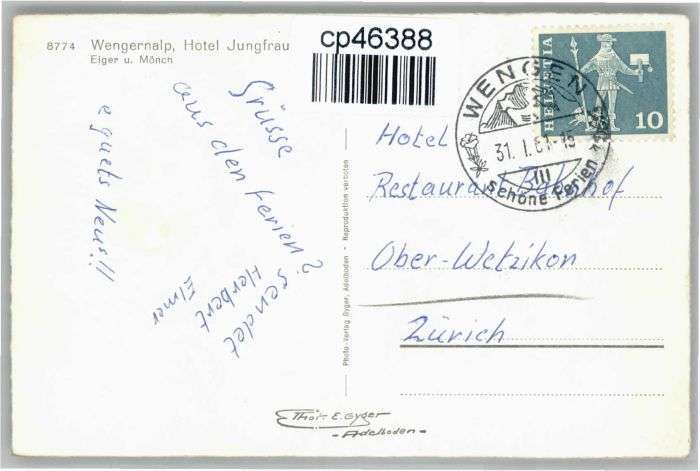 8774 Wengernalp, Hotel Jungfrau
Eiger u. Mönch
cp46388
Grüsse
aus den Ferien
sendet
Herbert
Elmer
e guets Neus!!
Photo-Verlag Gyger, Adelboden - Reproduktion verboten
Photo E. Gyger
-Adelboden-
HELVETIA
10
WENGEN
31. 1. 61-15
III
schöne Ferien
Hotel
Restaurant Bahnhof
Ober-Wetzikon
Zürich